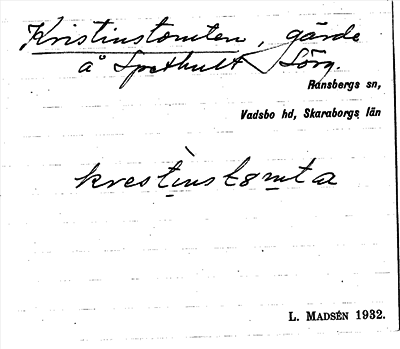 Kristinstomten, gärde
å Spethult Sörg.
Ransbergs sn,
Vadsbo hd, Skaraborgs län
krestinst8mta
L. MADSÉN 1932.